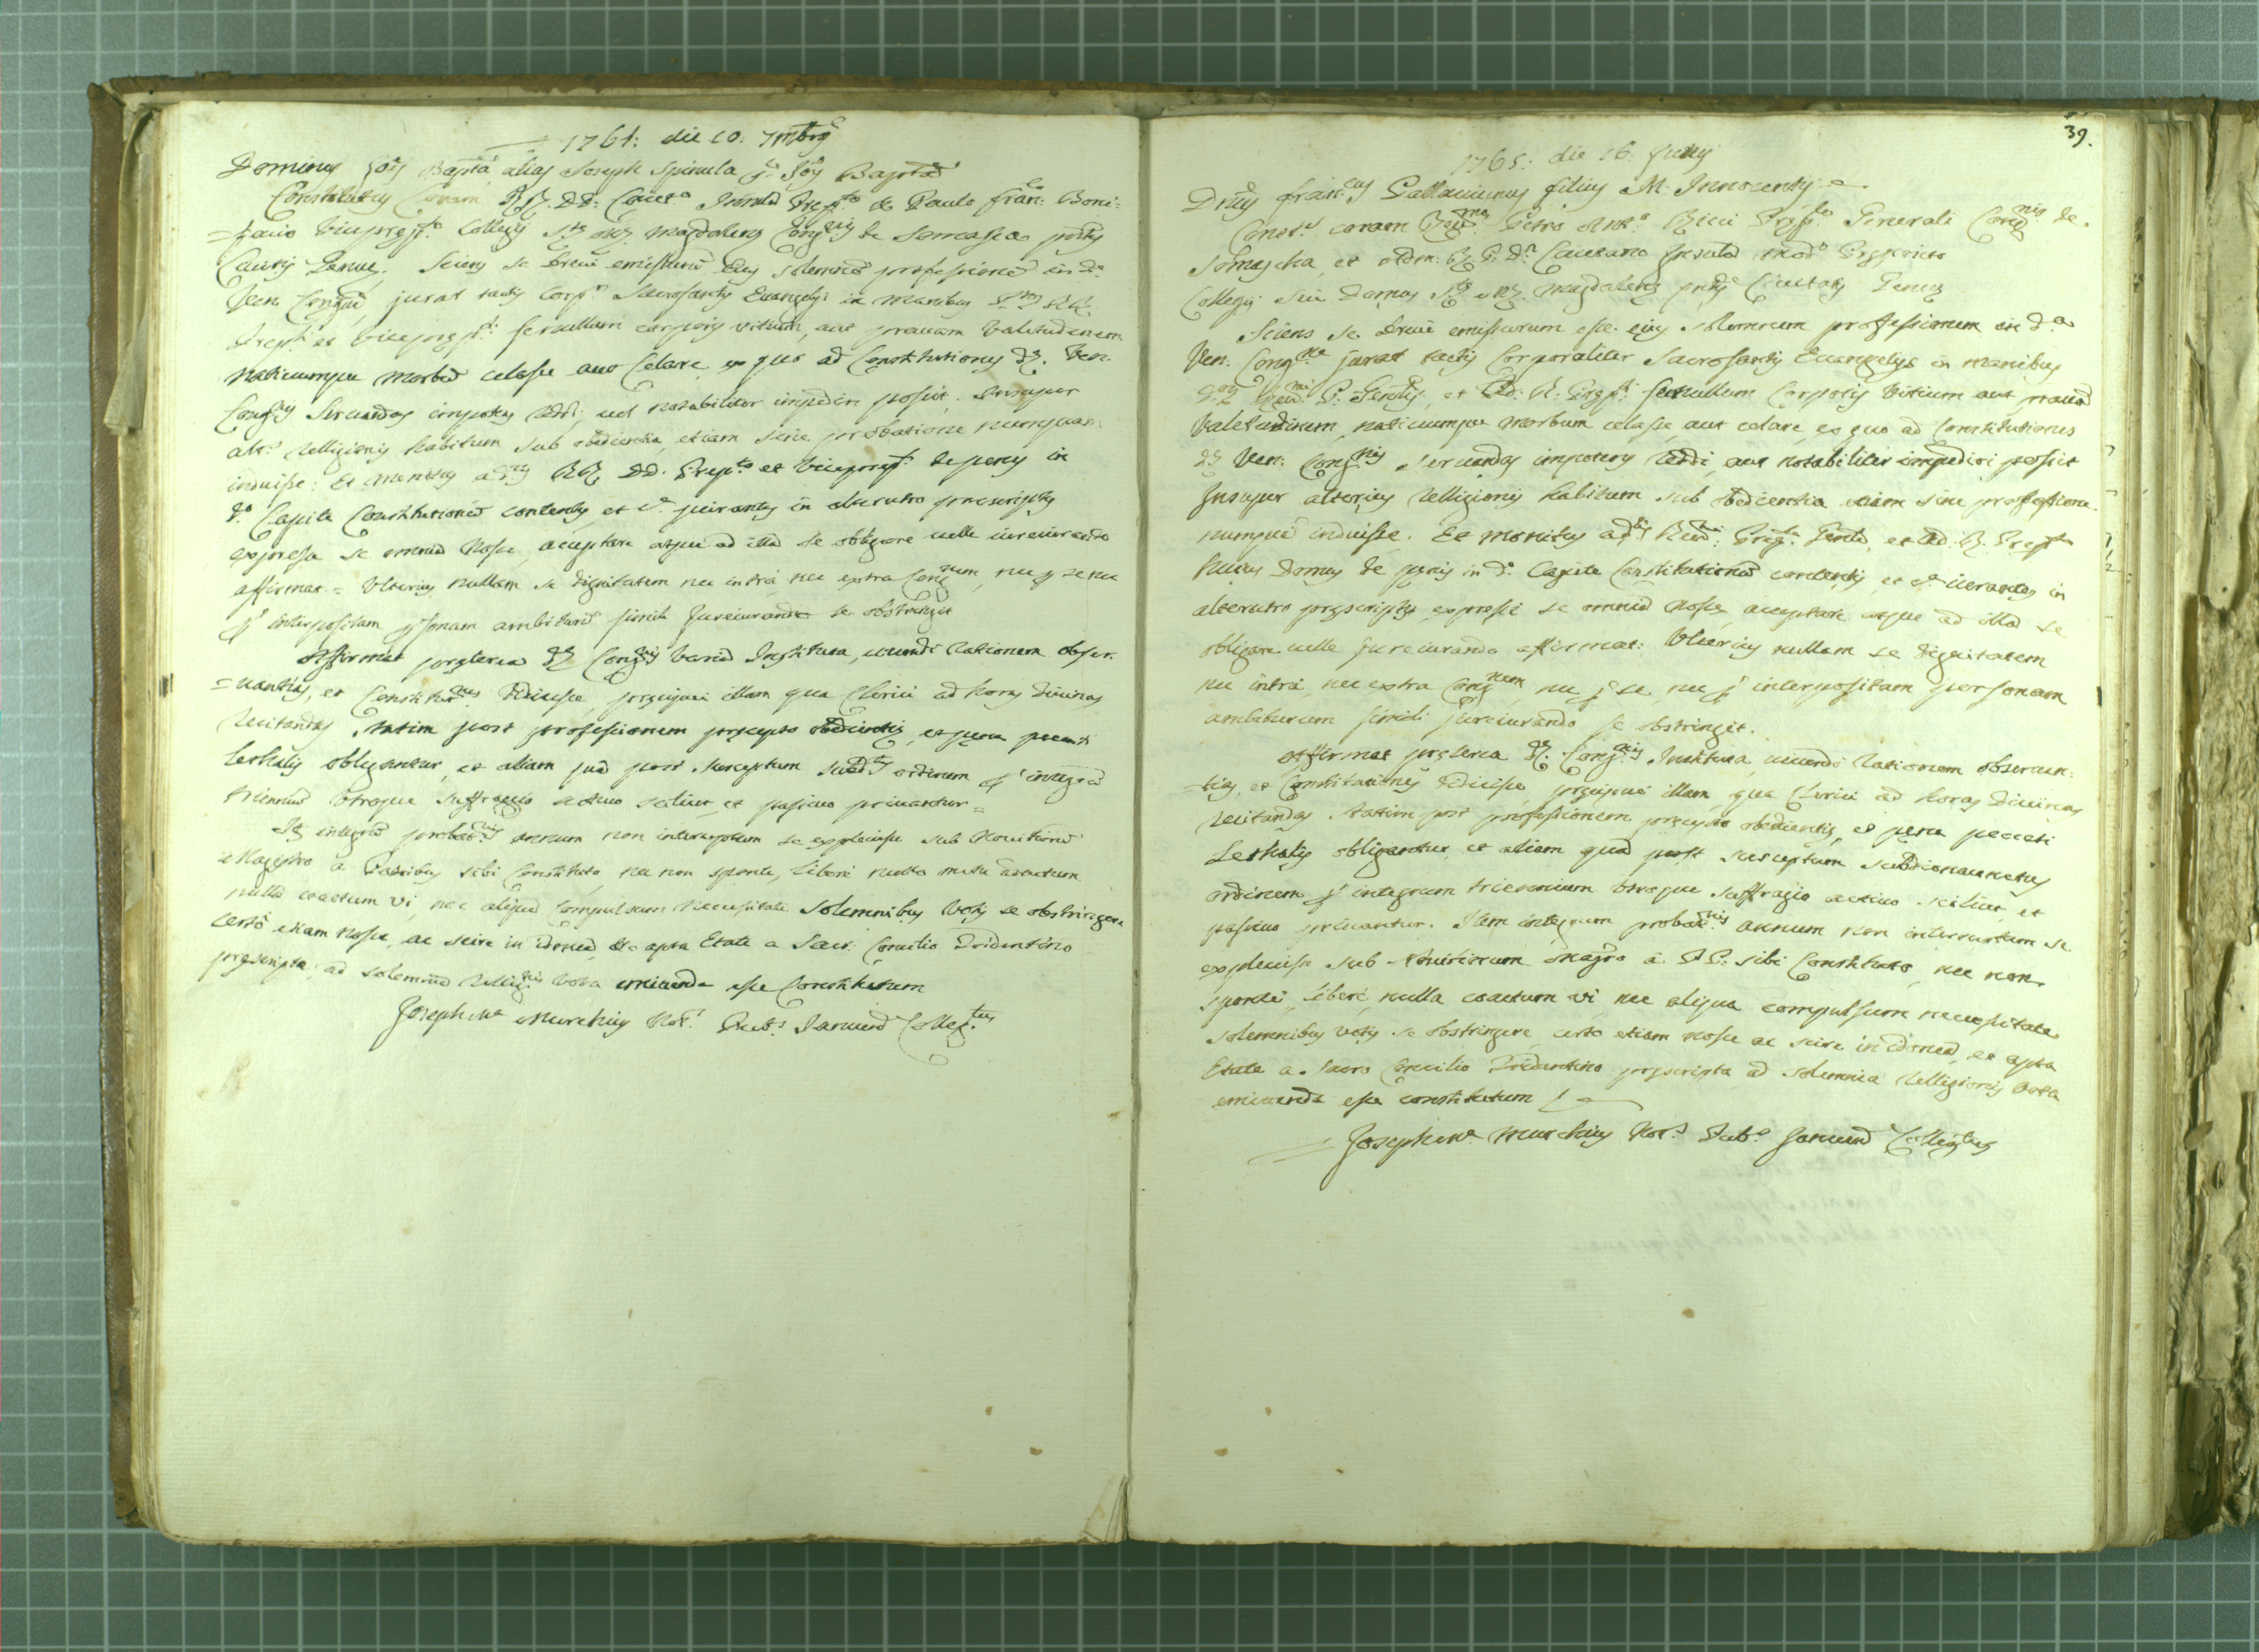 1761: die 10: 7mbris
Dominus Jois Bapta alias Joseph Spinula q. Jois Bapta
Constitutus Coram RR. DD: Caiet.o Præp.to & Paulo Fran.co Boni-
=facio Vicepræp.to Collegij S.tæ Mæ Magdalenæ Cong.nis de Somasca
Genuæ. Sciens se breui emissurum eius solemnem professionem in d.a
Ven. Cong.ne jurat tactis corp.r Sacrosanctis Euangelijs in manibus
Præp.ti et Vicepræp.ti se nullum corporis vitium, aut prauam Valetudinem
naticumque morbum celasse aut Celare ex quo ad Constitutiones d.æ Ven.
Cong.nis Seruandas impotens reddi, uel notabiliter impediri possit, Insuper
alt.s Relligionis habitum sub obedientia, etiam sine probatione numquam
induisse: Et monitus ad.is RR. DD. Præp.to et Vicepræp.to de penis in
d.o Capite Constitutionum contentis, et iurantis in alterutro præscriptis
expresse se omnia Nosse, acceptare atque ad illa se obligare uelle iureiurando
affirmat = Vlterius nullam se dignitatem nec intra, nec extra Cong.nem, nec p se nec
p interpositam psonam ambiturum simili Jureiurando se obstringit
Affirmat præterea d.æ Cong.nis Instituta, uiuendi Rationem obser-
=uantias, et Constitut.nes Didicisse, præcipue illam qua Clerici ad horas diuinas
recitandas statim post professionem præcepto obedientiæ, et pæna peccati
lethalis obligantur, et etiam quod post susceptum ordinem p integrum
triennium Vtroque suffragio actiuo scilicet, et passiuo priuantur =
integrum probat.nis annum non interruptum se expleuisse sub Nouitiorum
Magistro a Patribus sibi Constituto, nec non sponte, libere nullo metu
nulla coactum vi, nec aliqua compulsum Necessitate solemnibus Votis se obstringere
certo etiam nosse, ac scire in idonea, & apta Etate a Sacr. Concilio Tridentino
præscripta, ad solemnia Rellig.nis Vota emittenda esse Constitutum
Joseph M.a Murchius Not.s Pub.s Januensis Colleg.tus
39.
1765: die 16: Junij
D.nus Fran.cus Pallauicinus filius M. Innocentij
Const.s coram Reu.mo Petro Ant.o Ricci Præp.to Generali Cong.nis de
Somascha, et Adm. R. P. D.n Caietano mod.o Præposito
Collegij siue Domus S.tæ Mæ Magdalenæ Ciuitatis Genuæ
Sciens se breui emissurum esse eius solemnem professionem in d.a
Ven: Cong.ne jurat tactis Corporaliter Sacrosanctis Euangelijs in manibus
Reu.mi P. Gen.lis, et Ad: R. Præp.ti se nullum Corporis Vitium aut prauam
Valetudinem, naticumque Morbum celasse, aut celare, ex quo ad Constitutiones
d.æ Ven: Cong.nis seruandas impotens reddi, aut notabiliter impediri possit
Insuper alterius Relligionis habitum sub obedientia etiam sine professione
numquam induisse. Et monitus ad.is Reu.mi Præp.ti Gen.lis, et Ad. R. Præp.to
huius Domus de pænis in d.o Capite Constitutionum contentis, et iurantes in
alterutro præscriptis expresse se omnia Nosse acceptare atque ad illa se
obligare uelle Jureiurando affirmat: Vlterius nullam se dignitatem
nec intra, nec extra Cong.nem nec p se, nec p interpositam personam
ambiturum simili jureiurando se obstringit.
Affirmat præterea d.æ Cong.nis Instituta, uiuendi Rationem obseruan-
=tias, et Constitutiones didicisse, præcipue illam qua Clerici ad horas Diuinas
recitandas statim post professionem præcepto obedientiæ, et pæna peccati
Lethalis obligantur, et etiam quod post susceptum subdiaconatus
ordinem p integrum triennium Vtroque suffragio actiuo scilicet, et
passiuo priuantur. Item integrum probat.nis annum non interruptum se
expleuisse sub Nouitiorum Magro a PP: sibi Constituto, nec non
sponte, libere, nulla coactum vi, nec aliqua compulsum necessitate
solemnibus votis se obstringere certo etiam nosse ac scire in idonea, et apta
Etate a Sacro Concilio Tridentino præscripta ad solemnia Relligionis Vota
emittenda esse constitutum
Joseph M.a Murchius Not.s Pub.s Januens Collegtus